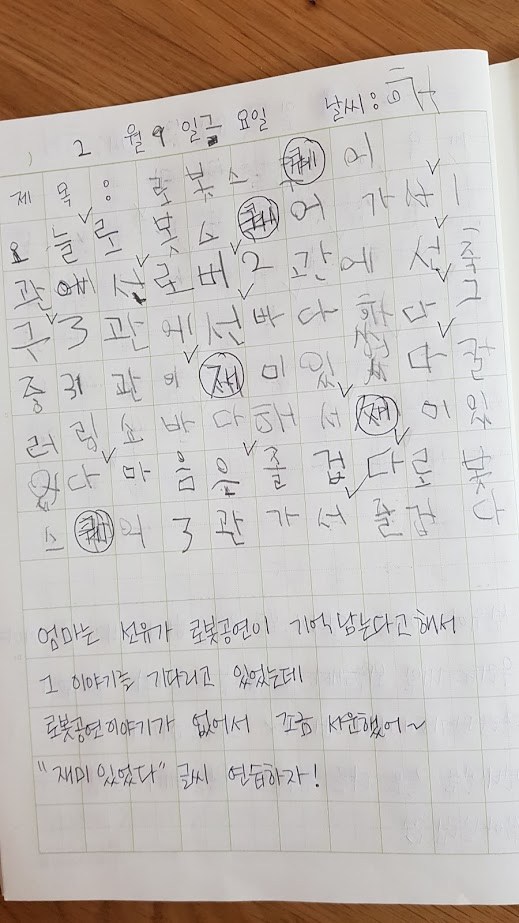 2 월 9 일금 요일 날씨:하
제 목 : 로봇스퀘어
오늘로봇스퀘어가서1
관에선로버2관에선축
구3관에선바다했다그
중3관이제미있섰다갈
러링쇼바다대서제미있
있다마음은줄겁다로봇
스퀘어3관가서줄겁다
엄마는 선유가 로봇공연이 기억남는다고해서
그 이야기를 기다리고 있었는데
로봇공연이야기가 없어서 조금 서운했어~
"재미있었다" 글씨 연습하자!